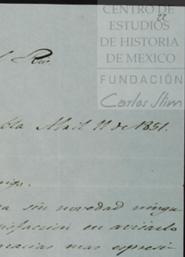 CENTRO DE
ESTUDIOS
DE HISTORIA
DE MEXICO
FUNDACIÓN
Carlos Slim
22
Abril 11 de 1851.
sin novedad ningu
satisfaccion en avisarlo
gracias mas espresi